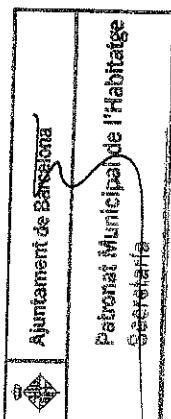 Ajuntament de Barcelona
Patronat Municipal de l'Habitatge
Secretaria